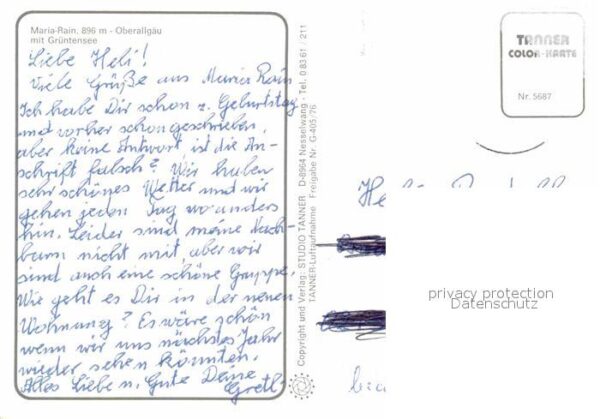 Maria-Rain, 896 m - Oberallgäu
mit Grüntensee
Liebe Heli!
Viele Grüße aus Maria Rain
Ich habe Dir schon z. Geburtstag
und vorher schon geschrieben,
aber keine Antwort, ist die An-
schrift falsch? Wir haben
sehr schönes Wetter und wir
gehen jeden Tag wo anders
hin. Leider sind meine Nach-
barn nicht mit, aber wir
sind auch eine schöne Gruppe.
Wie geht es Dir in der neuen
Wohnung? Es wäre schön
wenn wir uns nächstes Jahr
wieder sehen könnten.
Alles Liebe u. Gute Deine
Gretl
Copyright und Verlag: STUDIO TANNER D-8964 Nesselwang - Tel. 0 83 61 / 211
TANNER-Luftaufnahme Freigabe Nr. G-405/76
TANNER
COLOR-KARTE
Nr. 5687
privacy protection
Datenschutz